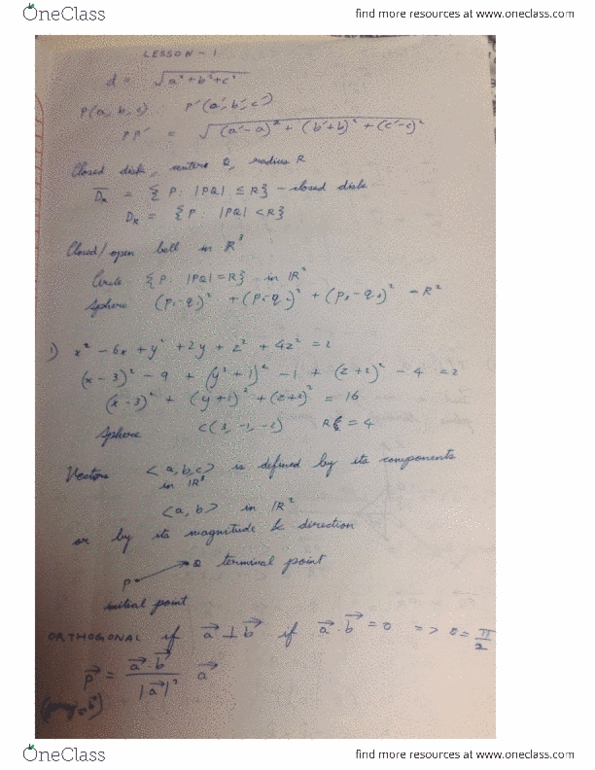 OneClass
find more resources at www.oneclass.com
LESSON - 1
d = √a² + b² + c²
P(a, b, c) P'(a', b', c')
PP' = √(a'-a)² + (b'+b)² + (c'-c)²
Closed disk, centre Q, radius R
D̅ᵣ = { P : |PQ| ≤ R} - closed disk
Dᵣ = { P : |PQ| < R}
Closed/open ball in R³
Circle {P : |PQ| = R} in R²
Sphere (p₁-q₁)² + (p₂-q₂)² + (p₃-q₃)² = R²
1) x² - 6x + y² + 2y + z² + 4z² = 2
(x-3)² - 9 + (y²+1)² - 1 + (z+2)² - 4 = 2
(x-3)² + (y+1)² + (z+2)² = 16
Sphere C(3, -1, -2) R = 4
Vectors <a,b,c> is defined by its components
in R³
<a, b> in R²
or by its magnitude & direction
Q terminal point
P
initial point
ORTHOGONAL if a⃗ ⊥ b⃗ if a⃗ . b⃗ = 0 => θ = π/2
p⃗ = a⃗ . b⃗ / |a⃗|² a⃗
OneClass
find more resources at www.oneclass.com